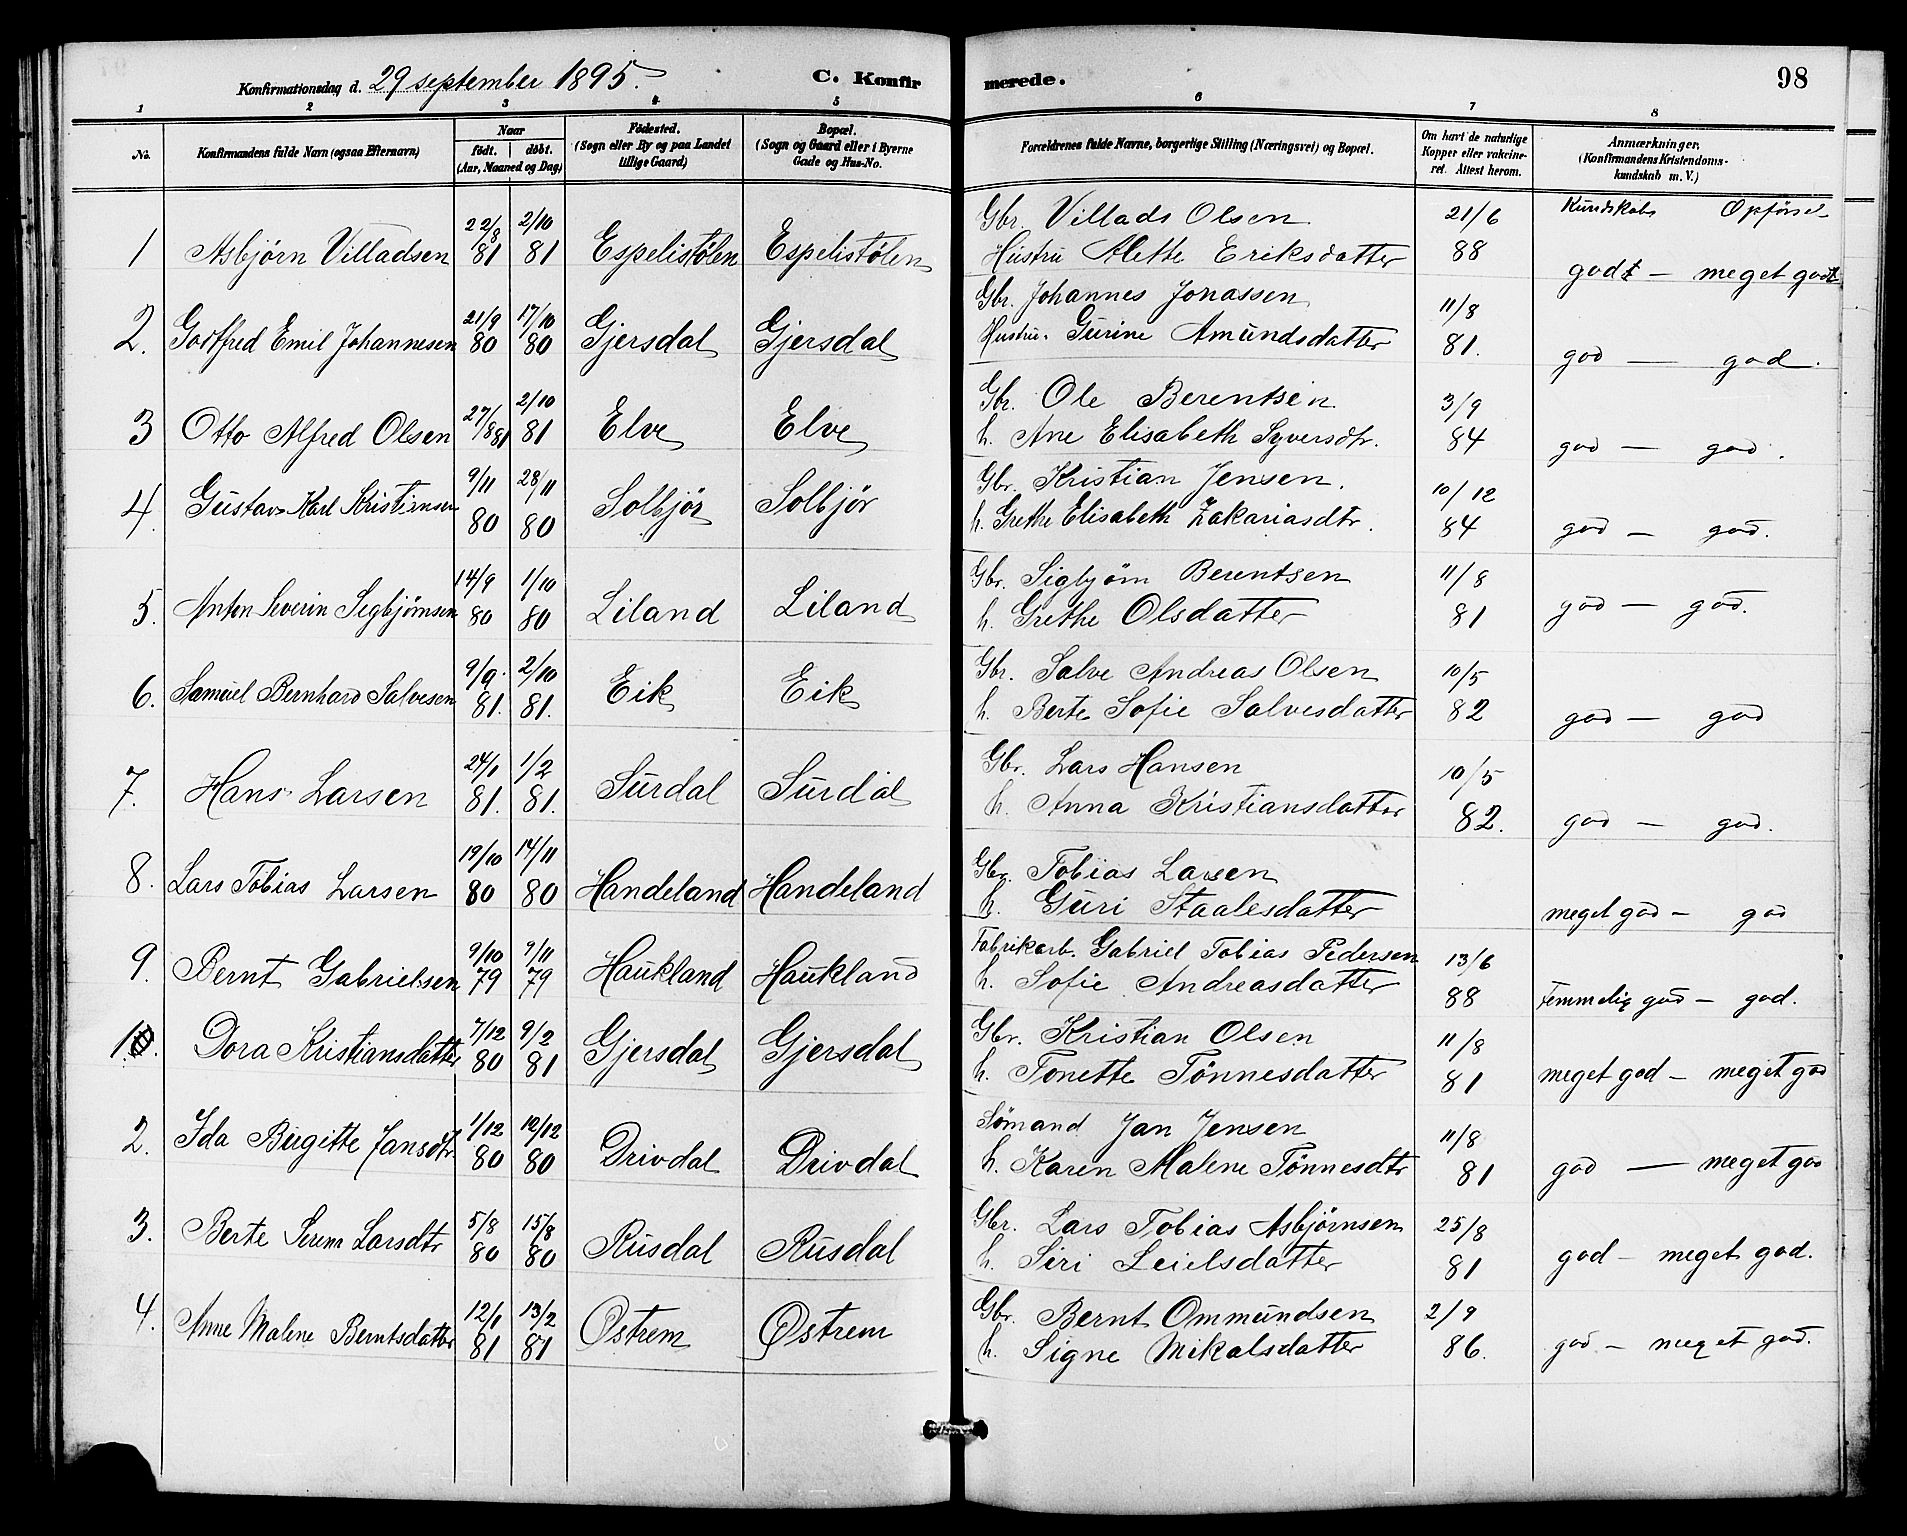 Konfirmationsdag d. 29 september 1895. C. Konfirmerede. 98
1 2 3 4 5 6 7 8
No. Konfirmandens fulde Navn (ogsaa Efternavn) Naar født. døbt. (Aar, Maaned og Dag) Fødested. (Sogn eller By og paa Landet tillige Gaard) Bopæl. (Sogn og Gaard eller i Byerne Gade og Hus-No. Forældrenes fulde Navne, borgerlige Stilling (Næringsvei) og Bopæl. Om havt de naturlige Kopper eller vakcineret. Attest herom. Anmærkninger, (Konfirmandens Kristendomskundskab m. V.)
Kundskabs Opførsel
1 Asbjørn Villadsen 22/8 81 2/10 81 Espelistølen Espelistølen Gbr. Villads Olsen 21/6
Hustru Alette Eriksdatter 88 godt — meget godt
2. Gotfred Emil Johannesen 21/9 80 17/10 80 Gjersdal Gjersdal Gbr. Johannes Jonassen 11/8
Hustru. Gurine Amundsdatter 81. god — god.
3 Otto Alfred Olsen 27/8 81 2/10 81 Elve Elve Gbr. Ole Berentsen 3/9
h. Ane Elisabeth Syversdtr. 84 god — god.
4. Gustav Karl Kristiansen 9/11 80 28/11 80 Solbjør Solbjør Gbr. Kristian Jensen. 10/12
h. Grethe Elisabeth Zakariasdtr. 84 god — god.
5. Anton Severin Segbjørnsen 14/9 80 1/10 80 Liland Liland Gbr. Sigbjørn Berentsen 11/8
h. Grethe Olsdatter 81 god — god.
6. Samuel Bernhard Salvesen 9/9. 81. 2/10 81. Eik Eik Gbr. Salve Andreas Olsen 10/5
h. Berte Sofie Salvesdatter 82 god — god
7. Hans Larsen 24/1 81. 1/2 81. Surdal Surdal Gbr. Lars Hansen 10/5
h. Anna Kristiansdatter 82. god — god.
8. Lars Tobias Larsen 19/10 80 14/11 80 Handeland Handeland Gbr. Tobias Larsen
h. Guri Staalesdatter meget god — god
9. Bernt Gabrielsen 9/10 79 9/11 79 Haukland Haukland Fabrikarb. Gabriel Tobias Pedersen 13/6
h. Sofie Andreasdatter 88 temmelig god — god.
1. Dora Kristiansdatter 7/12 80 9/2 81 Gjersdal Gjersdal Gbr. Kristian Olsen 11/8
h. Tonette Tønnesdatter 81 meget god — meget god
2. Ida Birgitte Jansdtr. 1/12 80 12/12 80 Drivdal Drivdal Sømand Jan Jensen 11/8
h. Karen Malene Tønnesdtr 81 god — meget god
3. Berte Larsdtr 5/8 80 15/8 80 Rusdal Rusdal Gbr. Lars Tobias Asbjørnsen 25/8
h. Siri Leielsdatter 81 god — meget god.
4. Anne Malene Berntsdatter 12/1 81 13/2 81 Østrem Østrem Gbr. Bernt Ommundsen 2/9
h. Signe Mikalsdatter 86. god — meget god.